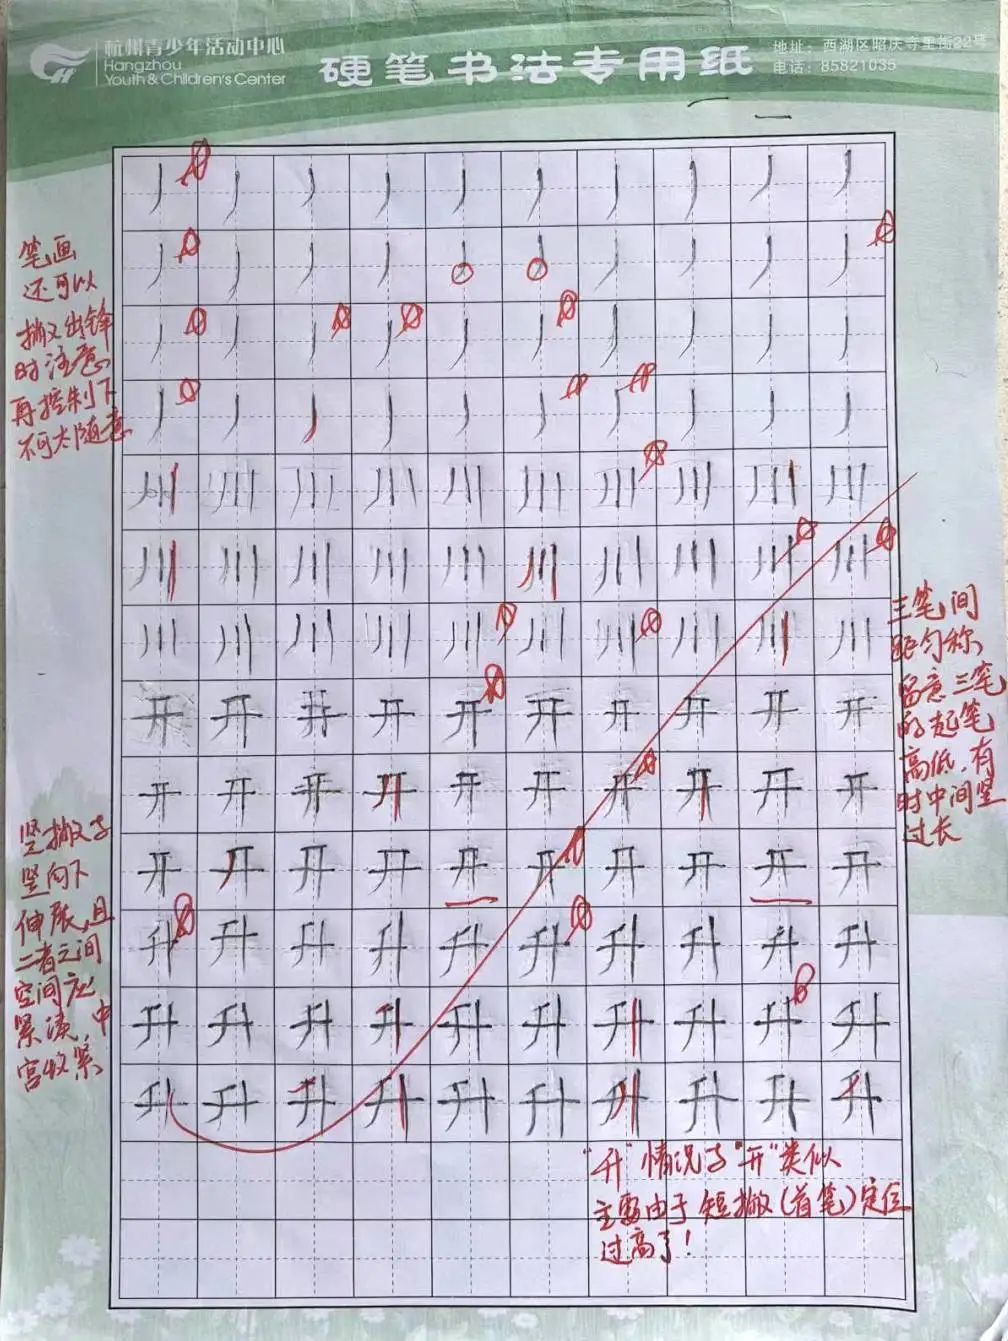 杭州青少年活动中心
Hangzhou
Youth & Children's Center
硬笔书法专用纸
地址：西湖区昭庆寺里街22号
电话：85821035
丿丿丿丿丿丿丿丿丿丿
丿丿丿丿丿丿丿丿丿丿
丿丿丿丿丿丿丿丿丿丿
丿丿丿丿丿丿丿丿丿丿
川川川川川川川川川川
川川川川川川川川川川
川川川川川川川川川川
开开开开开开开开开开
开开开开开开开开开开
开开开开开开开开开开
升升升升升升升升升升
升升升升升升升升升升
升升升升升升升升升升
笔画
还可以
撇出锋
时注意
再控制下
不可太随意
三笔间
距匀称
留意三笔
的起笔
高低，有
时中间竖
过长
竖撇与
竖向下
伸展，且
二者之间
空间应
紧凑，中
宫收紧
"升"情况与"开"类似
主要由于短撇(首笔)定位
过高了！